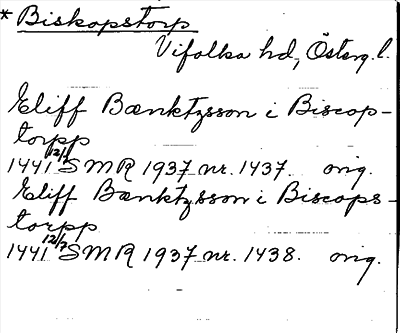 * Biskopstorp
Vifolka hd, Österg. l.
Eliff Bænktzsson i Biscop-
torpp
1441 12/7 SMR 1937 nr. 1437. orig.
Eliff Bænktzsson i Biscops-
torpp
1441 12/7 SMR 1937 nr. 1438. orig.